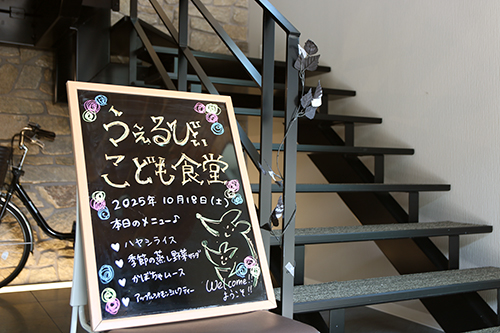 うぇるびぃ
こども食堂
2025年 10月18日(土)
本日のメニュー♪
♥ ハヤシライス
♥ 季節の蒸し野菜サラダ
♥ かぼちゃムース
♥ アップルシナモンミルクティー
Welcome!!
ようこそ!!